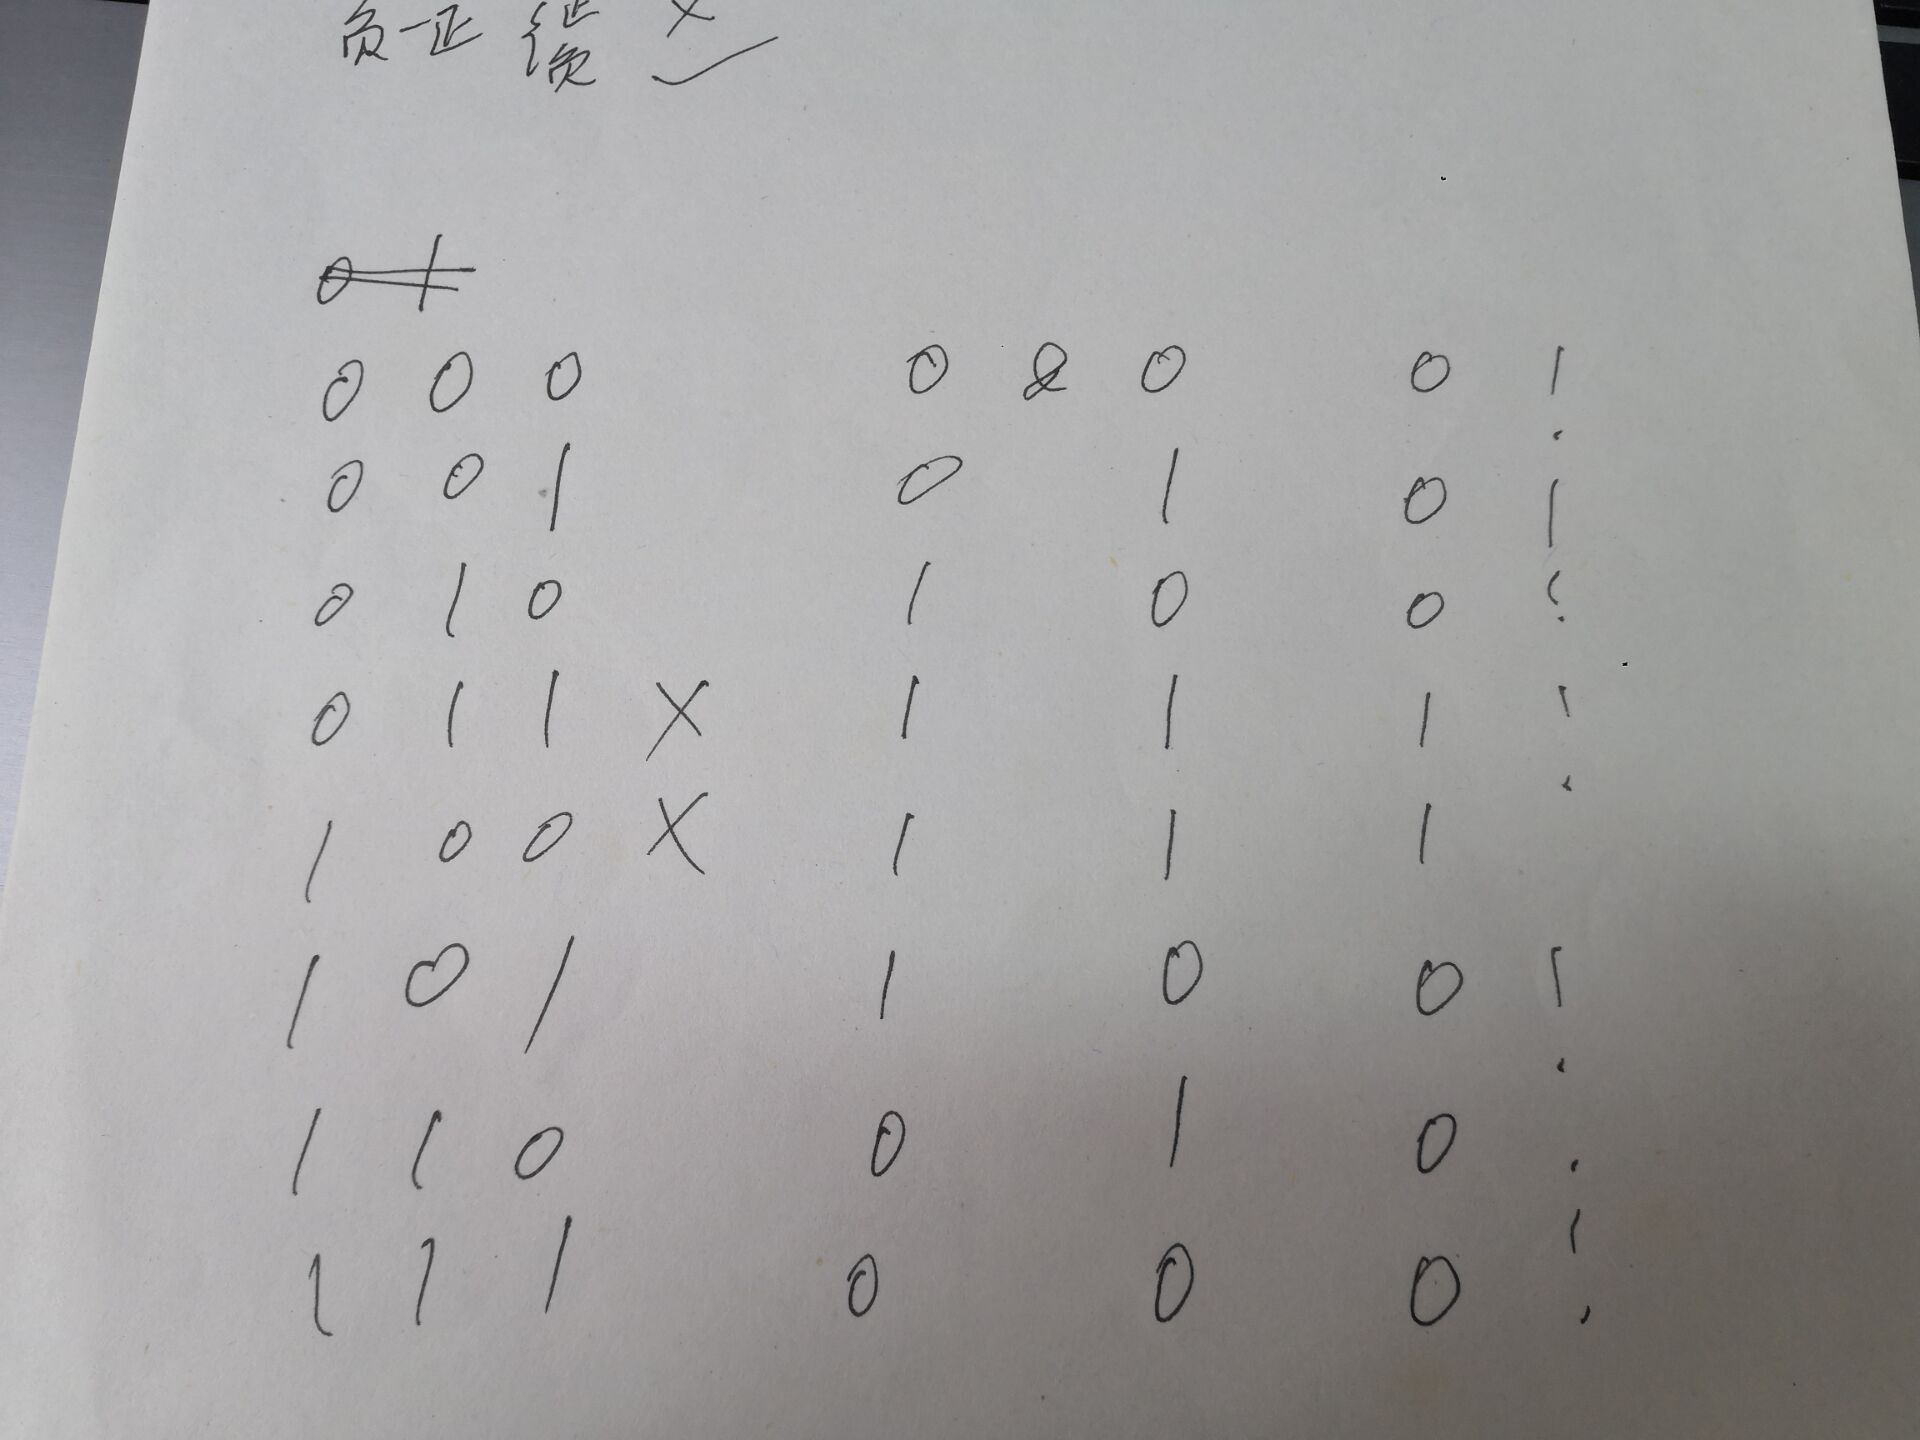 负-正 {正 ×
负 ✓
0 1
0 0 0 0 & 0 0 !
0 0 1 0 1 0 !
0 1 0 1 0 0 !
0 1 1 × 1 1 1 !
1 0 0 × 1 1 1
1 0 1 1 0 0 !
1 1 0 0 1 0 .
1 1 1 0 0 0 !